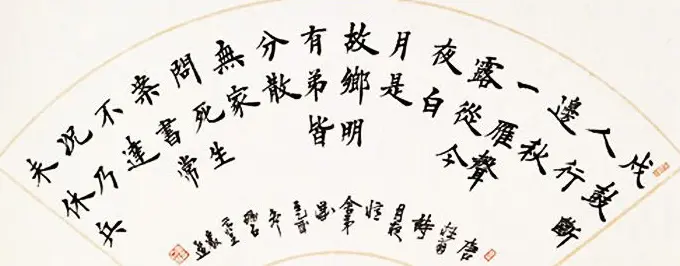 戍鼓斷
人行
邊秋
一雁聲
露從今
夜白
月是
故鄉明
有弟皆
分散
無家
問死生
寄書常
不達
況乃
未休兵
唐
杜甫
詩
月夜
憶
舍弟